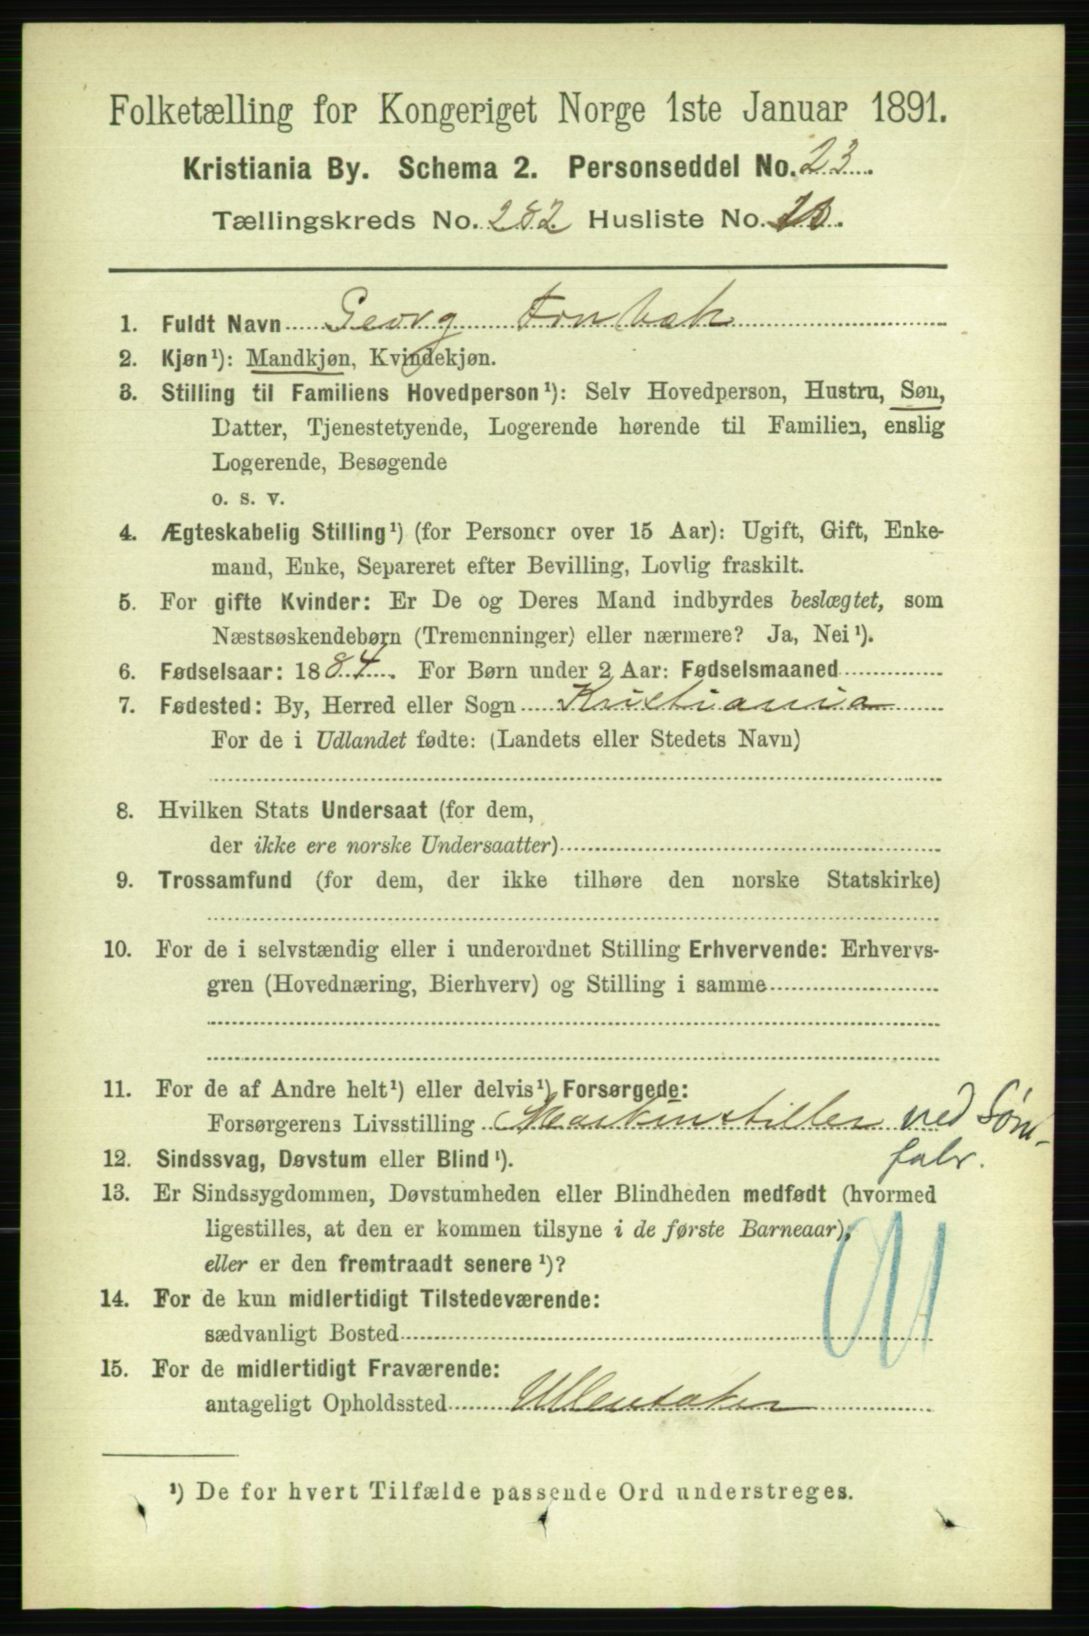 Folketælling for Kongeriget Norge 1ste Januar 1891.
Kristiania By. Schema 2. Personseddel No. 23.
Tællingskreds No. 282 Husliste No.
1. Fuldt Navn Georg Fonbæk
2. Kjøn¹): Mandkjøn, Kvindekjøn.
3. Stilling til Familiens Hovedperson¹): Selv Hovedperson, Hustru, Søn,
Datter, Tjenestetyende, Logerende hørende til Familien, enslig
Logerende, Besøgende
o. s. v.
4. Ægteskabelig Stilling¹) (for Personer over 15 Aar): Ugift, Gift, Enke-
mand, Enke, Separeret efter Bevilling, Lovlig fraskilt.
5. For gifte Kvinder: Er De og Deres Mand indbyrdes beslægtet, som
Næstsøskendebørn (Tremenninger) eller nærmere? Ja, Nei¹).
6. Fødselsaar: 1884. For Børn under 2 Aar: Fødselsmaaned
7. Fødested: By, Herred eller Sogn Kristiania
For de i Udlandet fødte: (Landets eller Stedets Navn)
8. Hvilken Stats Undersaat (for dem,
der ikke ere norske Undersaatter)
9. Trossamfund (for dem, der ikke tilhøre den norske Statskirke)
10. For de i selvstændig eller i underordnet Stilling Erhvervende: Erhvervs-
gren (Hovednæring, Bierhverv) og Stilling i samme
11. For de af Andre helt¹) eller delvis¹) Forsørgede:
Forsørgerens Livsstilling Maskinstiller ved Søm-
fabr.
12. Sindssvag, Døvstum eller Blind¹).
13. Er Sindssygdommen, Døvstumheden eller Blindheden medfødt (hvormed
ligestilles, at den er kommen tilsyne i de første Barneaar),
eller er den fremtraadt senere¹)?
14. For de kun midlertidigt Tilstedeværende:
sædvanligt Bosted
15. For de midlertidigt Fraværende:
antageligt Opholdssted Ullensaker
¹) De for hvert Tilfælde passende Ord understreges.